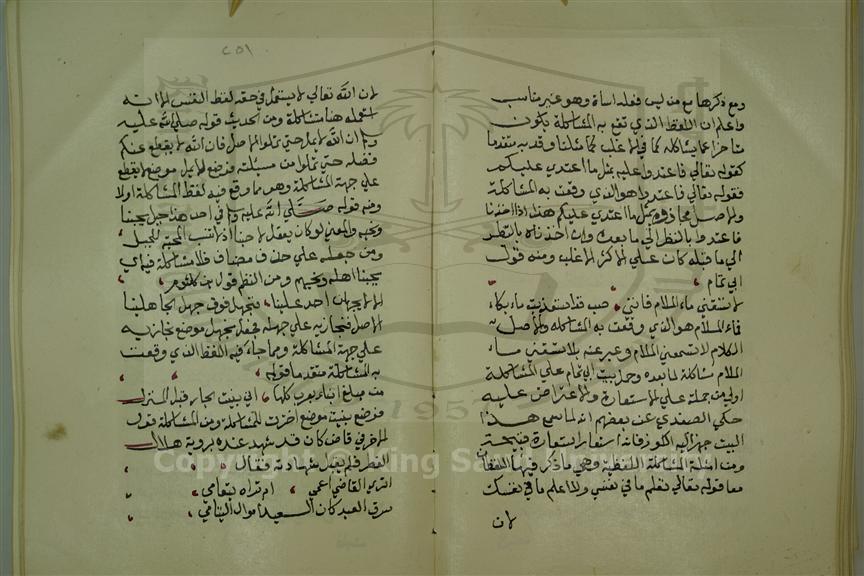 ومع ذكرها مع من ليس فعله اساة وهو غير مناسب
واعلم ان اللفظ الذي تقع به المشاكلة يكون
متاخرا عما يشاكله كما في الاغلب كما مثلنا وقد يه متقدما
كقوله تعالى فاعتدوا عليه بمثل ما اعتدى عليكم
فقوله تعالى فاعتدوا هو الذي وقعت به المشاكلة
والاصل مجازوه بمثل ما اعتدى عليكم هذا اذا اخذنا
فاعتدوا بالنظر الى ما بعده وان اخذناه بالنظر
الى ما قبله كان على الاكثر الاغلب ومنه قول
ابي تمام
لا تسقني ماء الملام فانني صب قد استعذبت ماء بكاء
فماء الملام هو الذي وقعت به المشاكلة والاصل
الكلام لا تسمعني الملام وعبر عنه بلا تسقني ماء
الملام مشاكلة لما بعده وحمل بيت ابي تمام على المشاكلة
اولى من حمله على الاستعارة والاعتراض عليه
حكى الصفدي عن بعضهم انه لما سمع هذا
البيت جهز اليه الكوز فانه استعار استعارة قبيحة
ومن امثلة المشاكلة اللفظية وهي ما ذكر فيها اللفظان
معا قوله تعالى تعلم ما في نفسي ولا اعلم ما في نفسك
لان
٢٥١
لان الله تعالى لا يستعمل في حقه لفظ النفس الا انه
استعمله هنا مشاكلة ومن الحديث قوله صلى الله عليه
وسلم ان الله لا يمل حتى تملوا الاصل فان الله لا يقطع عنكم
فضله حتى تملوا من مسئلته فوضع لا يمل موضع لا يقطع
على جهة المشاكلة وهو مما وقع فيه لفظ المشاكلة اولا
ومنه قوله صلى الله عليه وسلم في احد هذا جبل يحبنا
ونحبه والمعنى لو كان يعقل لاحبنا اذ المحبة للجبل
ومن جعله على حذف مضاف فلا مشاكلة فيه اي
يحبنا اهله ونحبهم ومن النظم قول بن كلثوم
الا لا يجهلن احد علينا فنجهل فوق جهل الجاهلينا
الاصل فنجازيه على جهله فجعل نجهل موضع نجازيه
على جهة المشاكلة ومما جاء فيه اللفظ الذي وقعت
به المشاكلة متقدما قوله
من مبلغ افناء يعرب كلها اني بنيت الجار قبل المنزل
فوضع بنيت موضع اخترت للمشاكلة ومن المشاكلة قول
الاخر في قاض كان قد شهد عنده بروية هلال
الفطر فلم يقبل شهادته فقال
اترى القاضي اعمى ام تراه يتعامى
سرق العيد كان العيد اموال اليتامى
Copyright © King Saud University
1957